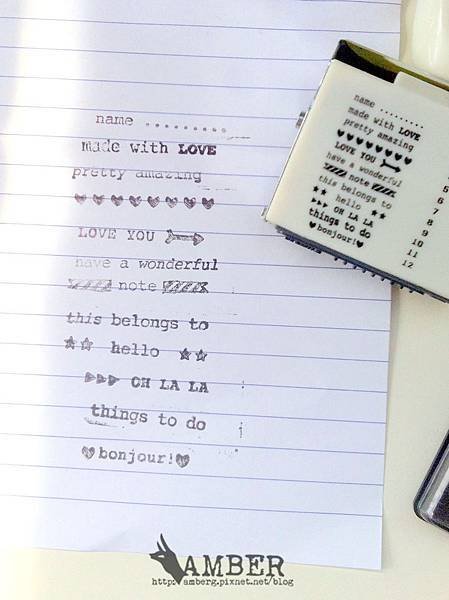 name .........
made with LOVE
pretty amazing
♥♥♥♥♥♥♥
LOVE YOU
have a wonderful
note
this belongs to
☆☆ hello ☆☆
▶▶▶ OH LA LA
things to do
♥bonjour!♥
name .........
made with LOVE
pretty amazing
♥♥♥♥♥♥♥
LOVE YOU
have a wonderful
note
this belongs to
★★ hello ★★
▶▶▶ OH LA LA
things to do
♥bonjour!♥
5
6
7
8
9
10
11
12
AMBER
http://amberg.pixnet.net/blog